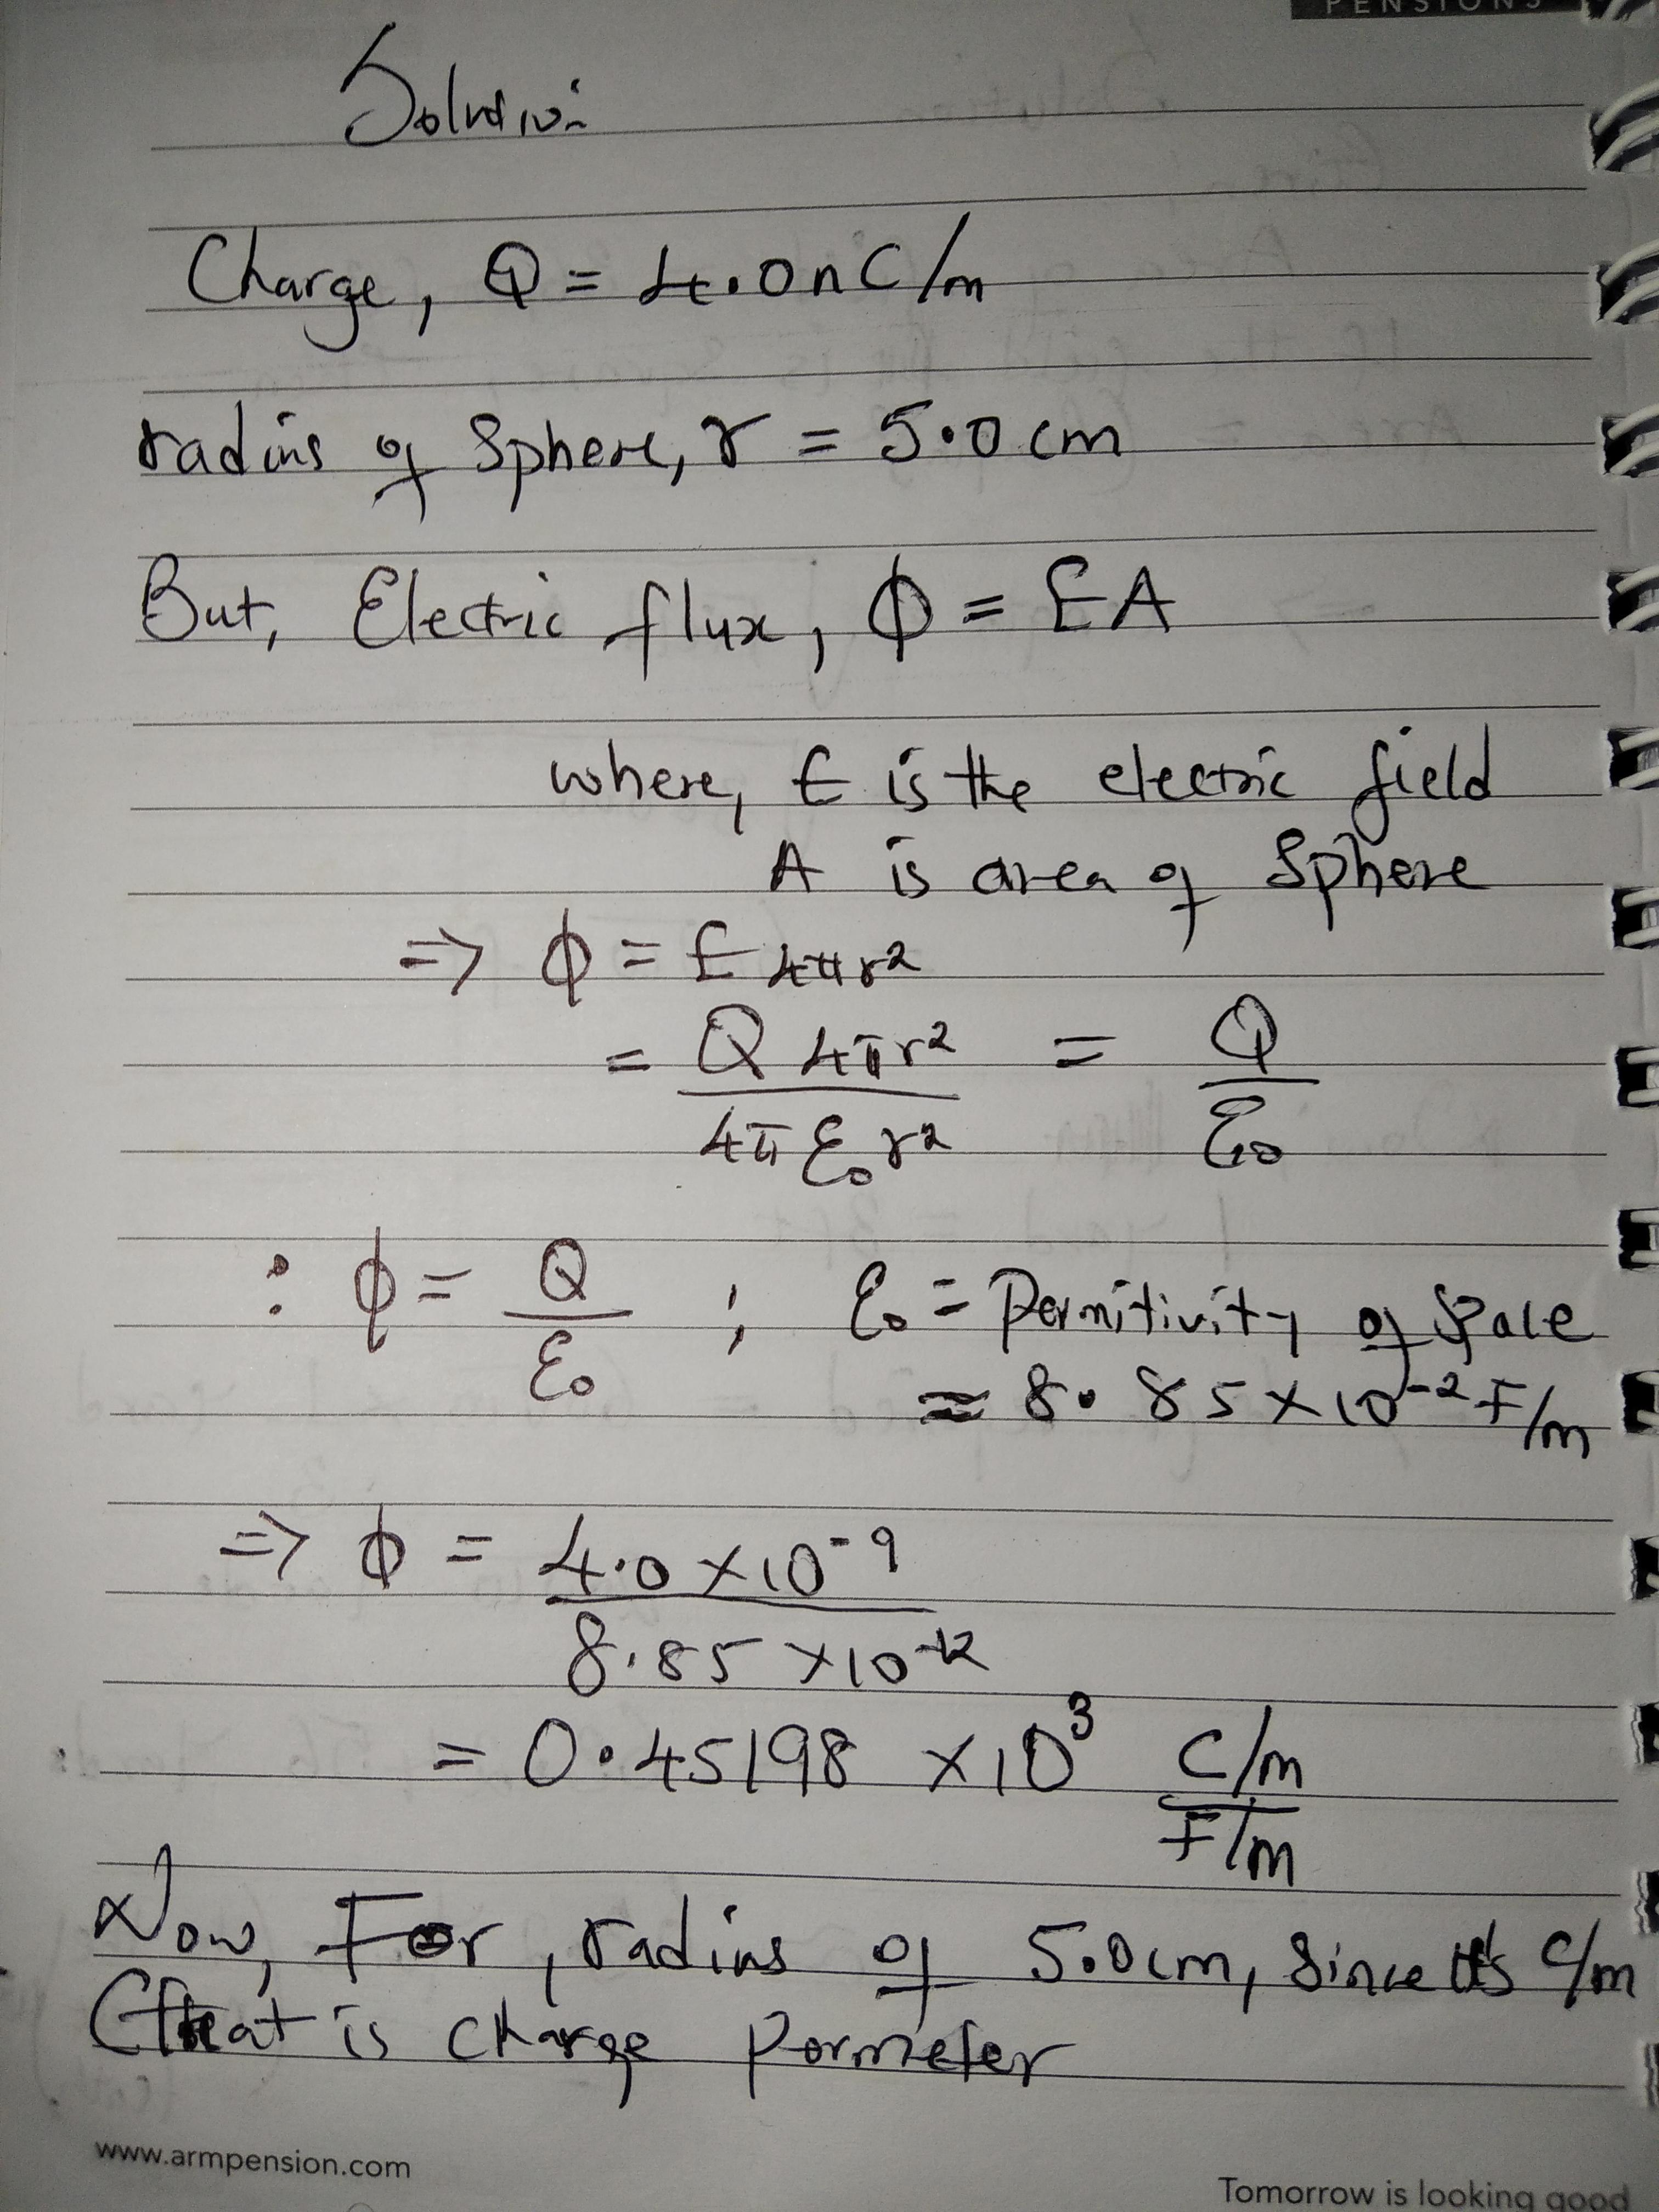 PENSIONS
Solution
Charge, Q = 4.0nC/m
radius of Sphere, r = 5.0cm
But, Electric flux, ϕ = EA
where, E is the electric field
A is area of Sphere
=> ϕ = E 4πr²
= Q 4πr² / 4πε₀r² = Q / ε₀
: ϕ = Q / ε₀ ; ε₀ = Permitivity of Space
= 8.85×10⁻² F/m
=> ϕ = 4.0×10⁻⁹ / 8.85×10⁻¹²
= 0.45198 ×10³ C/m / F/m
Now, For, radius of 5.0cm, Since it's C/m
(that is charge permeter
www.armpension.com
Tomorrow is looking good